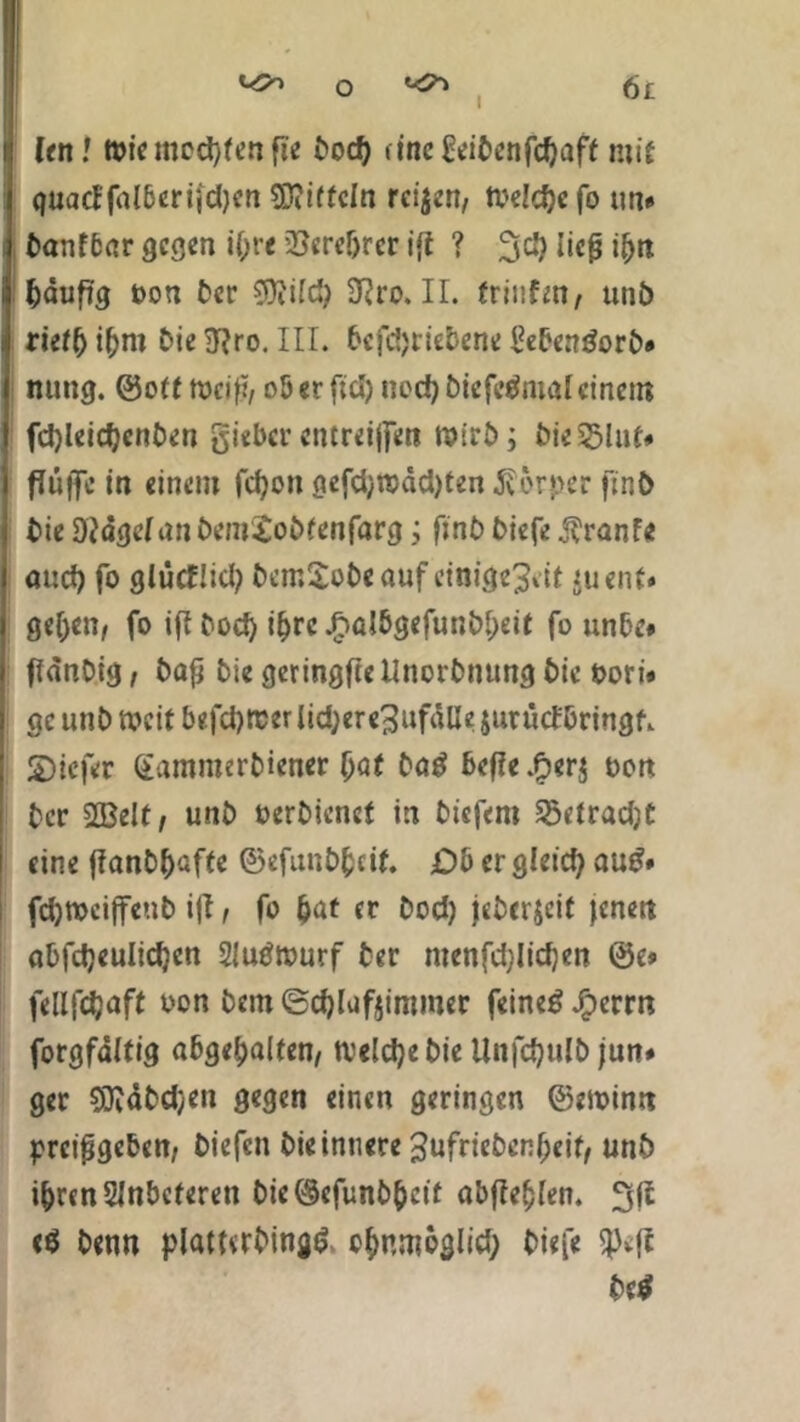 o 61
len! wie mochten sie doch eine Leidenschaft mit
quacksalberischen Mitteln reizen, welche so un-
dankbar gegen ihre Verehrer ist? Ich ließ ihn
häufig von der Milch Nro. II. trinken, und
rieth ihm die Nro. III. beschriebene Lebensord-
nung. Gott weiß, ob er sich noch diesesmal einem
schleichenden Fieber entreissen wird; die Blut-
flüsse in einem schon geschwächten Körper sind
die Nägel an dem Todtensarg; sind diese Kranke
auch so glücklich dem Tode auf einige Zeit zu ent-
gehen, so ist doch ihre Halbgesundheit so unbe-
ständig, daß die geringste Unordnung die vori-
ge und weit beschwerlichere Zufälle zurückbringt.
Dieser Cammerdiener hat das beste Herz von
der Welt, und verdienet in diesem Betracht
eine standhafte Gesundheit. Ob er gleich aus-
schweiffend ist, so hat er doch jederzeit jenen
abscheulichen Auswurf der menschlichen Ge-
sellschaft von dem Schlafzimmer seines Herrn
sorgfältig abgehalten, welche die Unschuld jun-
ger Mädchen gegen einen geringen Gewinn
preißgeben, diesen die innere Zufriedenheit, und
ihren Anbeteren die Gesundheit abstehlen. Ist
es denn platterdings ohnmöglich diese Pest
des